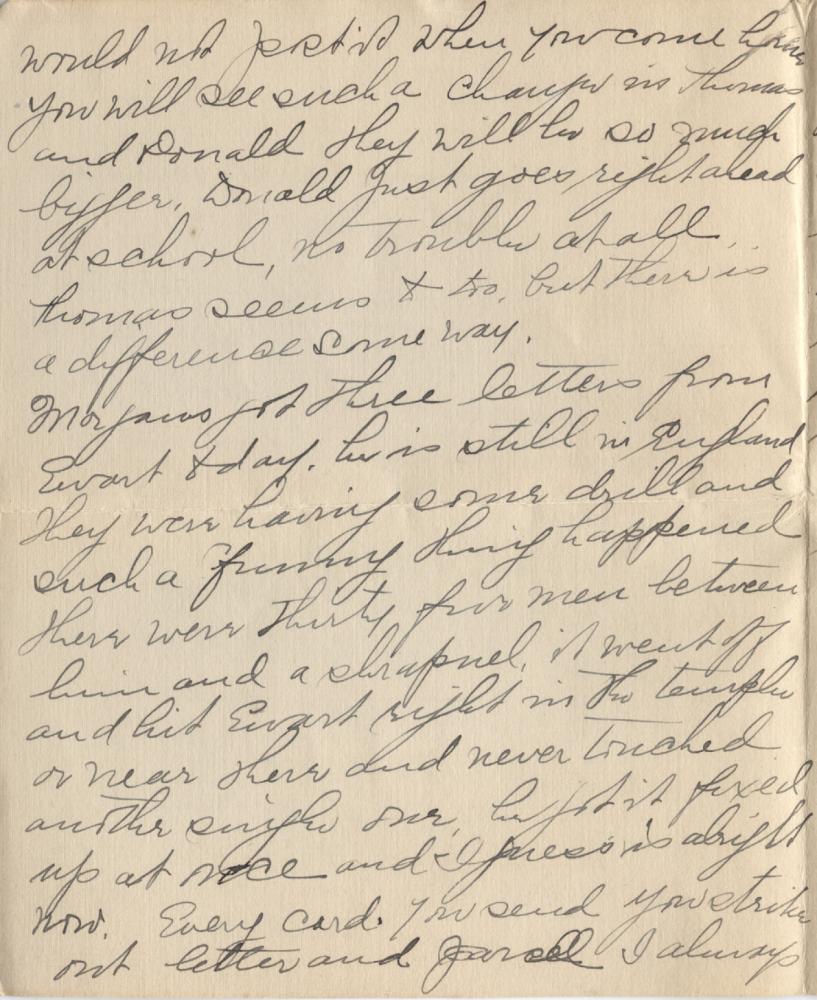 would not post it when you come home
you will see such a change in Thomas
and Donald they will be so much
bigger. Donald just goes right ahead
at school, no trouble at all
Thomas seems to too, but there is
a difference some way.
Morgans got three letters from
Ewart today. he is still in England
they were having some drill and
such a funny thing happened
there were thirty five men between
him and a shrapnel, it went off
and hit Ewart right in the temple
or near there and never touched
another single one, he got it fixed
up at once and I guess is alright
now. Every card you send you strike
out letter and parcel I always